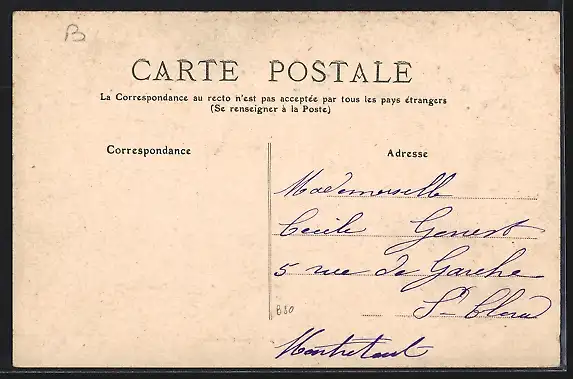 B
CARTE POSTALE
La Correspondance au recto n'est pas acceptée par tous les pays étrangers
(Se renseigner à la Poste)
Correspondance
Adresse
Mademoiselle
Cécile Genest
5 rue de Garche
St Cloud
Montretout
B80